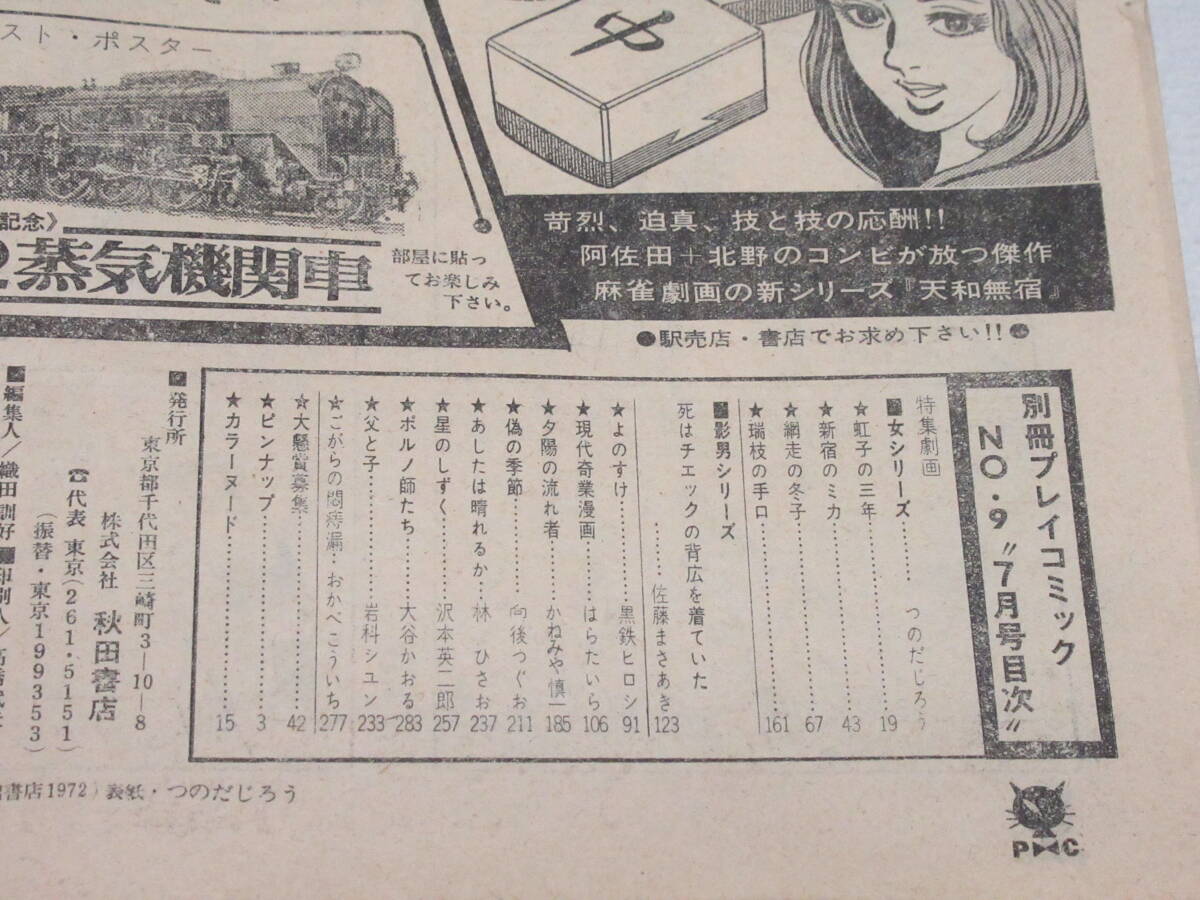 スト・ポスター
記念》
2蒸気機関車
部屋に貼っ
てお楽しみ
下さい。
苛烈、迫真、技と技の応酬!!
阿佐田+北野のコンビが放つ傑作
麻雀劇画の新シリーズ『天和無宿』
●駅売店・書店でお求め下さい!!●
別冊プレイコミック
NO・9〝7月号目次〟
特集劇画
■女シリーズ……… つのだじろう
★虹子の三年…………19
★新宿のミカ…………43
★網走の冬子…………67
★瑞枝の手口…………161
■影男シリーズ
死はチェックの背広を着ていた
……佐藤まさあき 123
★よのすけ………黒鉄ヒロシ 91
★現代奇業漫画……はらたいら 106
★夕陽の流れ者……かねみや慎一 185
★偽の季節………向後つぐお 211
★あしたは晴れるか…林 ひさお 237
★星のしずく………沢本英二郎 257
★ポルノ師たち……大谷かおる 283
☆父と子…………岩科シユン 233
☆ごがらの悶痔漏…おかべこういち 277
☆大懸賞募集…………42
★ピンナップ…………3
★カラーヌード…………15
■発行所
東京都千代田区三崎町3—10—8
株式会社 秋田書店
☎代表 東京(261・5151)
(振替・東京199353)
■編集人/織田訓好■印刷人/
書店1972)表紙・つのだじろう
P C